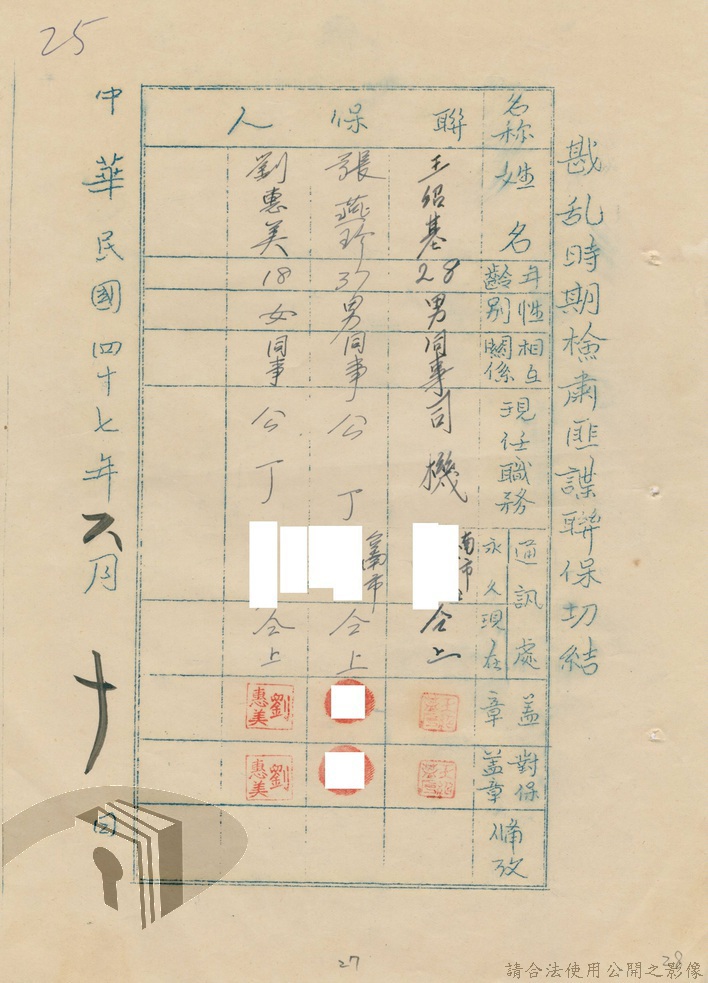 25
戡乱時期檢肅匪諜聯保切結
名称 姓名 年齡 性別 相互關係 現任職務 通訊處 永久 現在 盖章 對保盖章 備攷
聯保人
王紹基 28 男 同事 司機 南市 仝上
張燕珍 37 男 同事 公丁 台南市 仝上
劉惠美 18 女 同事 公丁 仝上
劉惠美
劉惠美
中華民國四十七年六月十日
27
28
請合法使用公開之影像